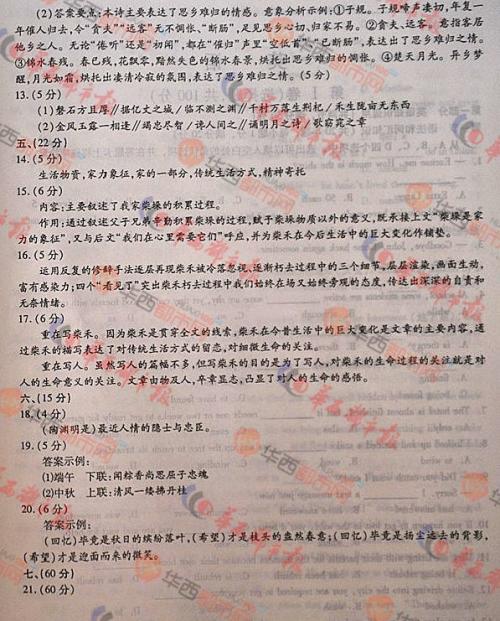 (2)答案要点:本诗主要表达了思乡难归的情感。意象分析示例:①子规。子规啼声凄切,年复一
年催人归去,今“贪夫”“远客”无不惆怅、“断肠”,足见思乡心切、归家不易。②贪夫、远客。意指客居
他乡之人。无论“倦听”还是“初闻”,都在“催归”声里“空低首”“已断肠”,表达出了思乡难归之情。
③锦水春残。春已残,花飘零,黯然失色的锦水春景,烘托出思乡难归的惆怅。④楚天月光。异乡梦
醒,月光如霜,烘托出凄清冷寂的氛围,表达了思乡难归之情。(5分)
13.(5分)
(1)磐石方且厚∥摇亿文之城∥临不测之渊∥千村万落生荆杞∥禾生陇亩无东西
(2)金风玉露一相逢∥竭忠尽智∥谗人间之∥诵明月之诗∥歌窈窕之章
五、(22分)
14.(5分)
生活物资,家力象征,家的一部分,传统生活方式,精神寄托
15.(5分)
内容:主要叙述了我家柴垛的积累过程。
作用:通过叙述父子兄弟辛勤积累柴垛的过程,赋予柴垛物质以外的意义,既承接上文“柴垛是家
力的象征”,又与后文“我们在心里需要它们”呼应,并为柴禾在今后生活中的巨大变化作铺垫。
16.(5分)
运用反复的修辞手法逐层再现柴禾被冷落忽视,逐渐朽去过程中的三个细节,层层渲染,画面生动,
富有感染力;四个“看见了”突出柴禾朽去过程中我们始终在场又始终旁观的态度,传达出深深的自责和
无奈情绪。
17.(6分)
重在写柴禾。因为柴禾是贯穿全文的线索,柴禾在今昔生活中的巨大变化是文章的主要内容,通
过柴禾的描写表达了对传统生活方式的留恋,对细微生命的关注。
重在写人。虽然写人的篇幅不多,但写柴禾的目的是为了写人,对柴禾的生命过程的关注就是对
人的生命意义的关注。文章由物及人,卒章显志,凸显了对人的生命的感悟。
六、(15分)
18.(4分)
(陶渊明是)最近人情的隐士与忠臣。
19.(5分)
答案示例:
(1)端午 下联:闻粽香尚思屈子忠魂
(2)中秋 上联:清风一缕拂丹桂
20.(6分)
答案示例:
(回忆)毕竟是秋日的缤纷落叶,(希望)才是枝头的盎然春意;(回忆)毕竟是扬尘远去的背影,
(希望)才是迎面而来的微笑。
七、(60分)
21.(60分)